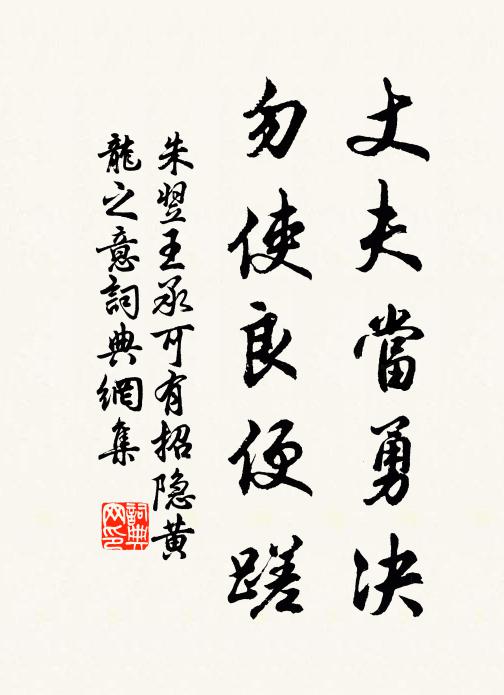 丈夫當勇决
勿使良便蹉
朱翌王承可有招隐黄
龍之意詞典網集
詞典网印